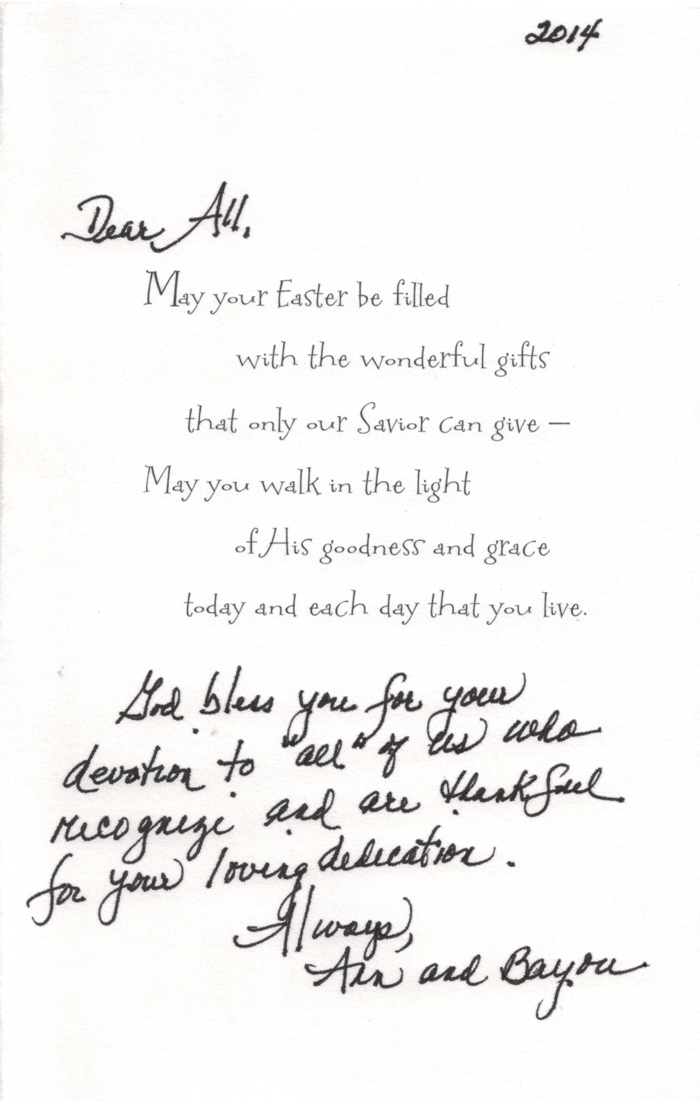 2014
Dear All,
May your Easter be filled
with the wonderful gifts
that only our Savior can give –
May you walk in the light
of His goodness and grace
today and each day that you live.
God bless you for your
devotion to "all" of us who
recognize and are thankful
for your loving dedication.
Always,
Ann and Bayou